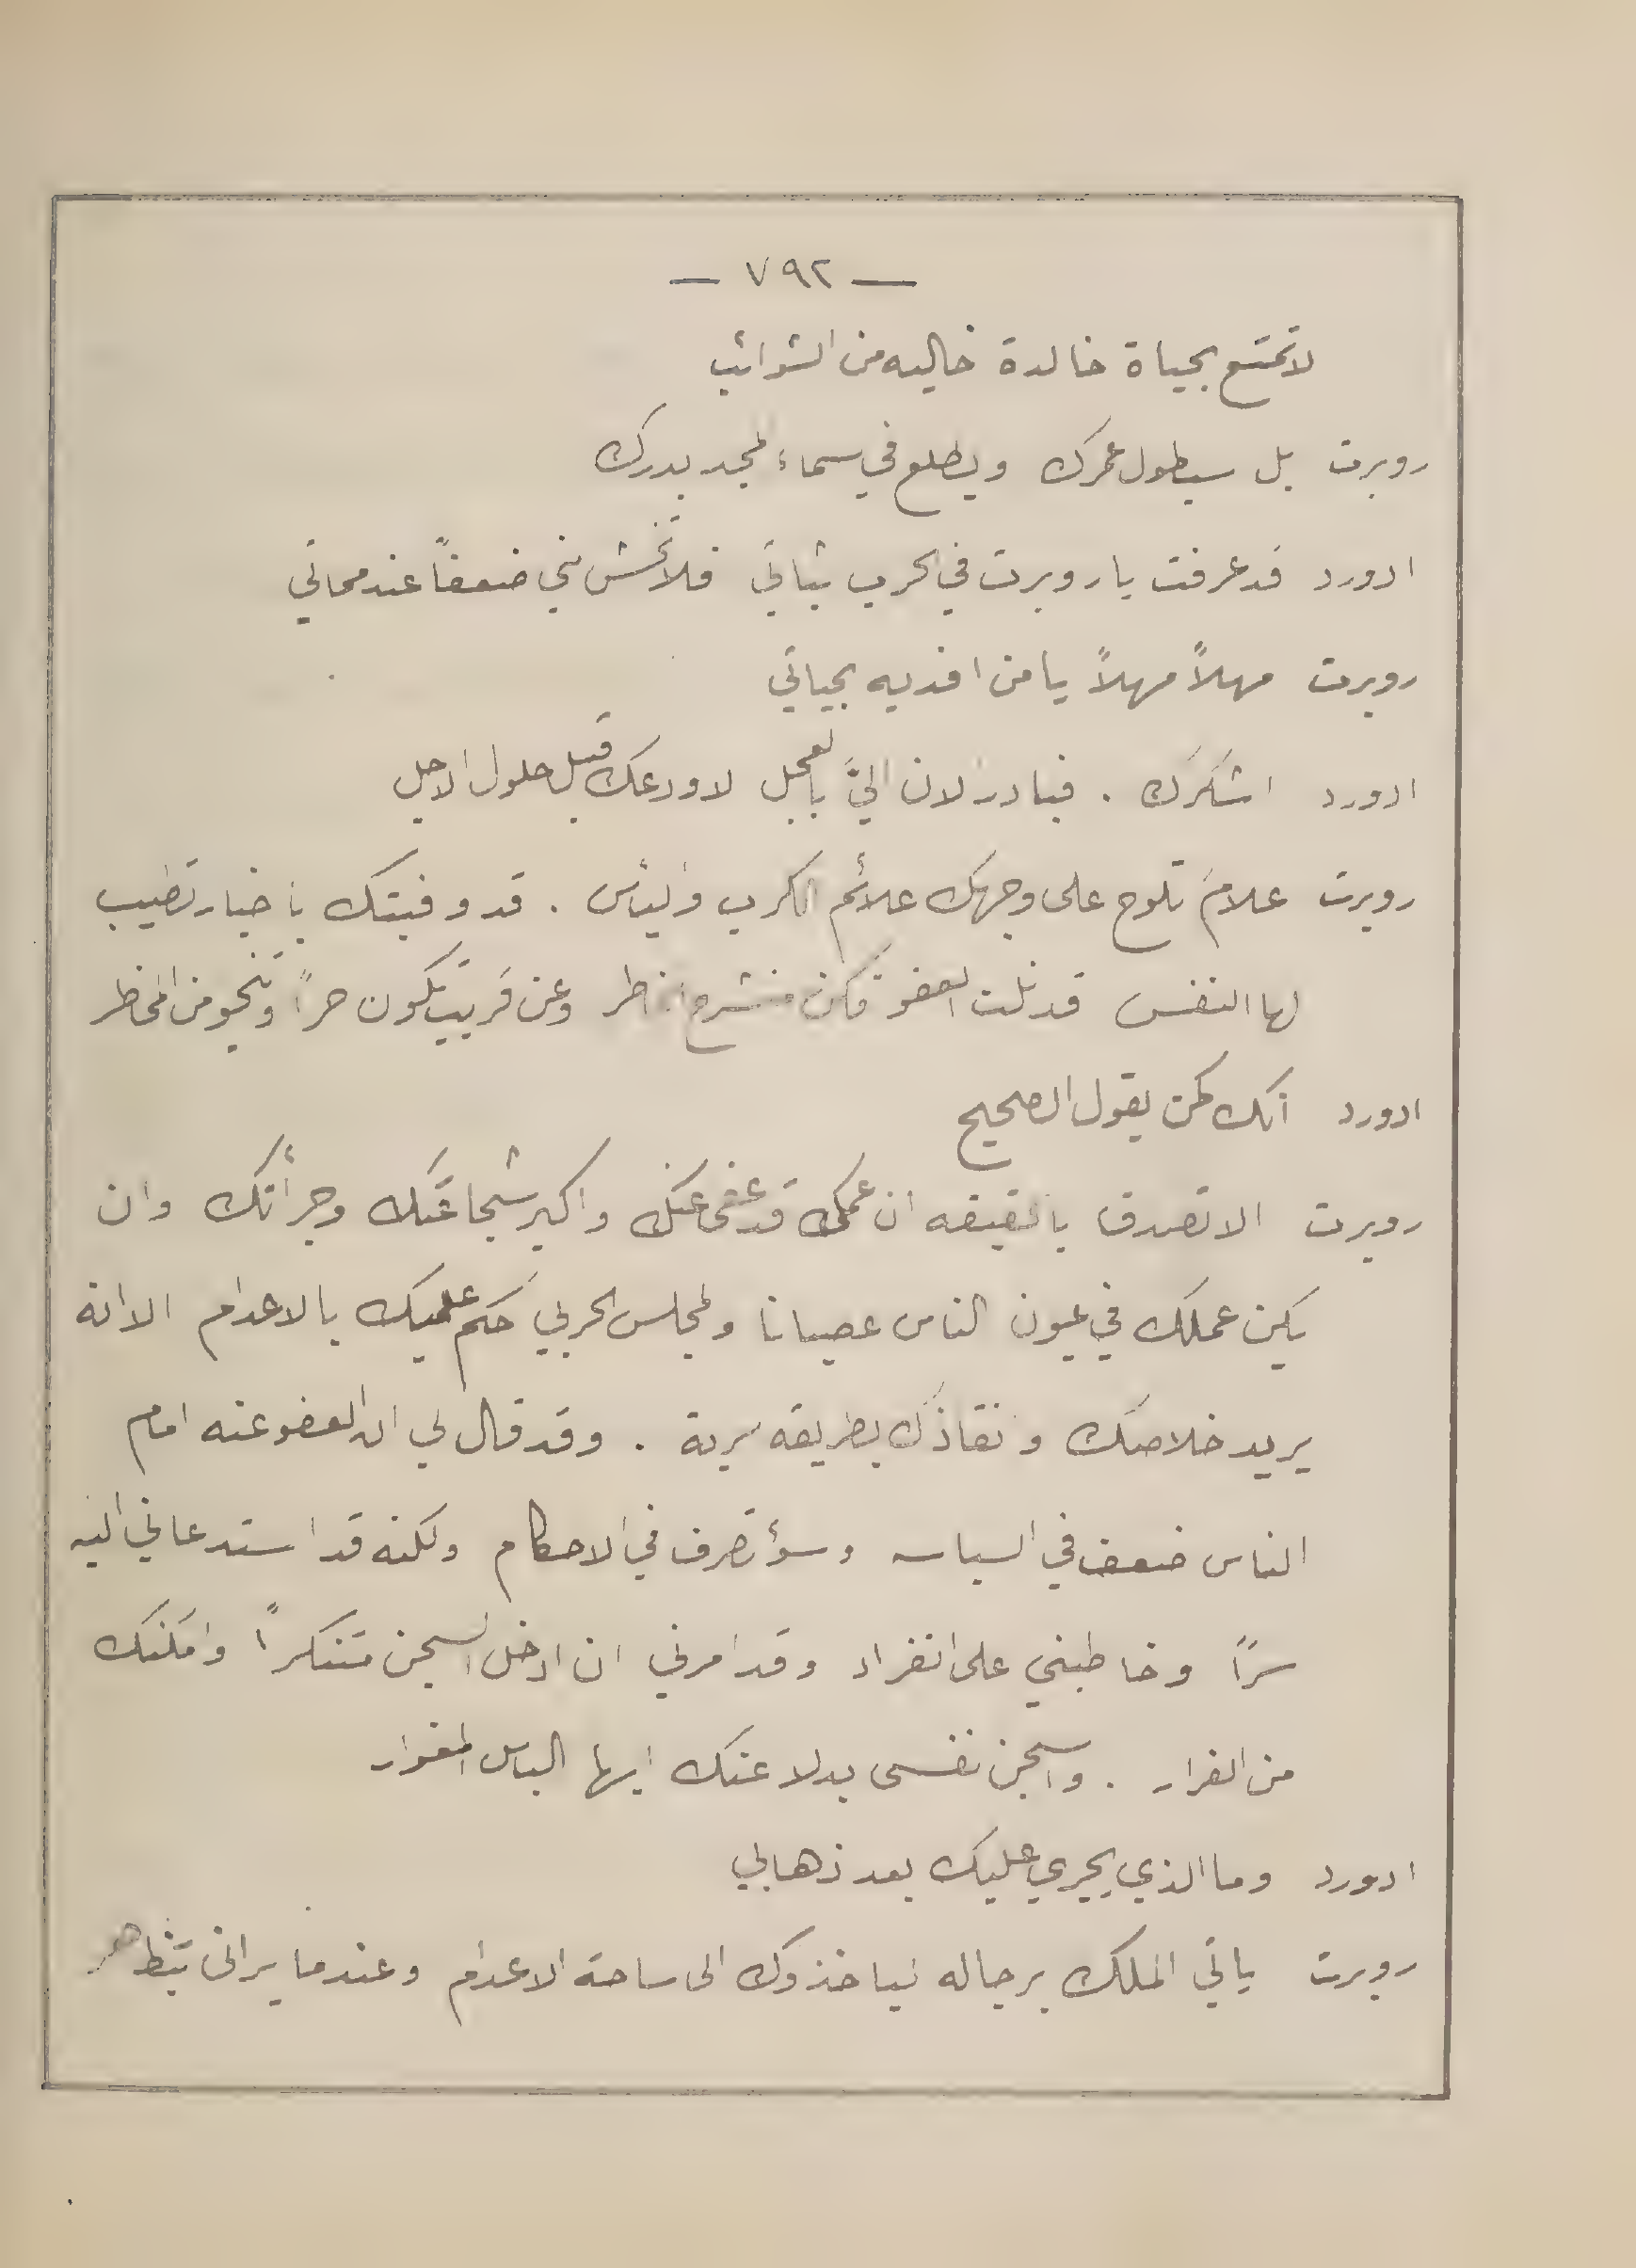 — ٧٩٢ —
لاتمتع بحياة خالدة خاليه من الشوائب
روبرت بل سيطول عمرك ويطلع في سماء المجد بدرك
ادورد قد عرفت ياروبرت في الحرب ثباتي فلا تخش مني ضعفاً عند مماتي
روبرت مهلاً مهلاً يا من افديه بحياتي
ادورد اشكرك . فبادر الان اليَّ بالعجل لاودعك قبل حلول الاجل
روبرت علامَ تلوح على وجهك علائم الكرب واليأس . قد وفيتك باخبار تطيب
لها النفس قد نلت العفو فكن منشرح الخاطر وعن قريب تكون حراً وتنجو من المخاطر
ادورد انك لمن يقول الصحيح
روبرت الا تصدق بالحقيقه ان عمك قد عفى عنك واكبر شجاعتك وجرأتك وان
يكن عملك في عيون الناس عصيانا والمجلس الحربي حَكم عليك بالاعدام الا انه
يريد خلاصك وانقاذك بطريقه سرية . وقد قال لي ان العفو عنه امام
الناس ضعف في السياسه وسؤ تصرف في الاحكام ولكنه قد استدعاني اليه
سراً وخاطبني على انفراد وقد امرني ان ادخل السجن متنكراً وامكنك
من الفرار . واسجن نفسى بدلا عنك ايها الباسل المغوار
ادورد وما الذي يجري عليك بعد ذهابي
روبرت ياتي الملك برجاله لياخذوك الى ساحة الاعدام وعندما يرانى يتظاهر